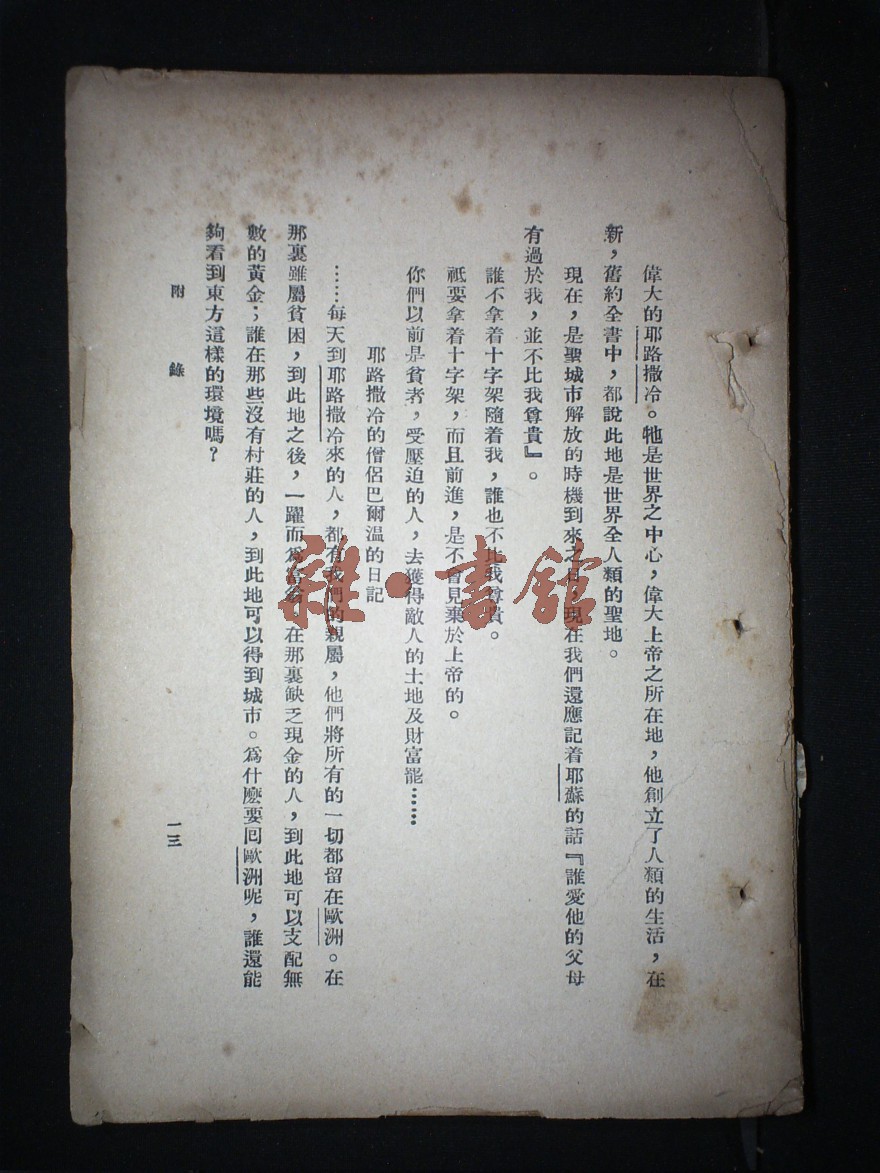 偉大的耶路撒冷。牠是世界之中心，偉大上帝之所在地，他創立了人類的生活，在
新，舊約全書中，都說此地是世界全人類的聖地。
現在，是聖城市解放的時機到來之日，現在我們還應記着耶蘇的話『誰愛他的父母
有過於我，並不比我尊貴』。
誰不拿着十字架隨着我，誰也不比我尊貴。
祗要拿着十字架，而且前進，是不會見棄於上帝的。
你們以前是貧者，受壓迫的人，去獲得敵人的土地及財富罷……
耶路撒冷的僧侶巴爾溫的日記
……每天到耶路撒冷來的人，都有我們的親屬，他們將所有的一切都留在歐洲。在
那裏雖屬貧困，到此地之後，一躍而爲富翁。在那裏缺乏現金的人，到此地可以支配無
數的黃金；誰在那些沒有村莊的人，到此地可以得到城市。爲什麽要回歐洲呢，誰還能
夠看到東方這樣的環境嗎？
附錄
一三
雜·書館